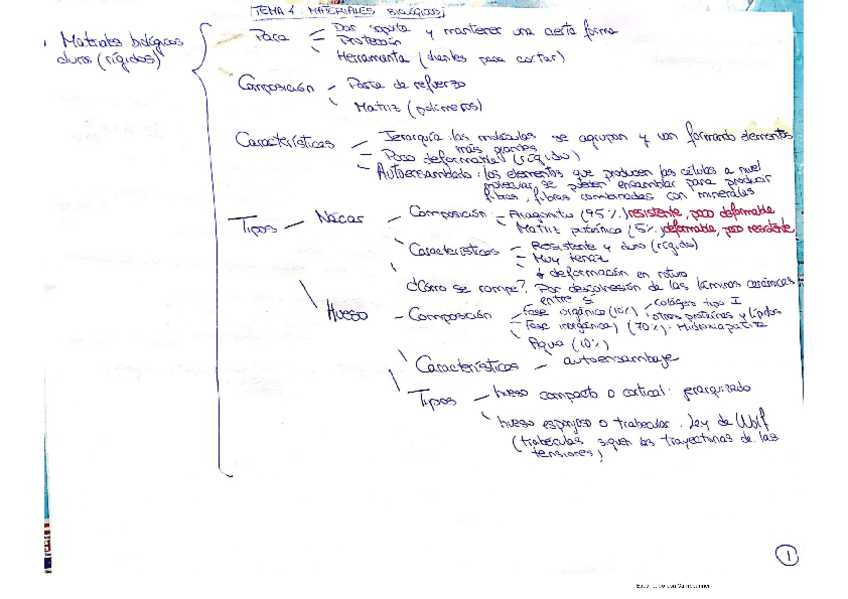 TEMA 1. MATERIALES BIOLÓGICOS
. Materiales biológicos duros (rígidos)
Para - Dar soporte y mantener una cierta forma
- Protección
Herramienta (dientes para cortar)
Composición - Parte de refuerzo
Matriz (polímeros)
Características - Jerarquía: las moléculas se agrupan y van formando elementos
más grandes
- Poco deformable (rígido)
- Autoensamblado: los elementos que producen las células a nivel
molecular se pueden ensamblar para producir
fibras, fibras combinadas con minerales
Tipos - Nácar - Composición - Aragonito (95%) resistente, poco deformable
- Matriz proteínica (5%) deformable, poco resistente
Características - Resistente y duro (rígido)
- Muy tenaz
↓ deformación en rotura
¿Cómo se rompe?. Por descohesión de las láminas cerámicas
entre sí
Hueso - Composición - Fase orgánica (20%) - Colágeno tipo I
otras proteínas y lípidos
- Fase inorgánica (70%) - Hidroxiapatita
Agua (10%)
Características - autoensamblaje
Tipos - hueso compacto o cortical: jerarquizado
hueso esponjoso o trabecular. Ley de Wolf
(trabéculas siguen las trayectorias de las
tensiones)
1